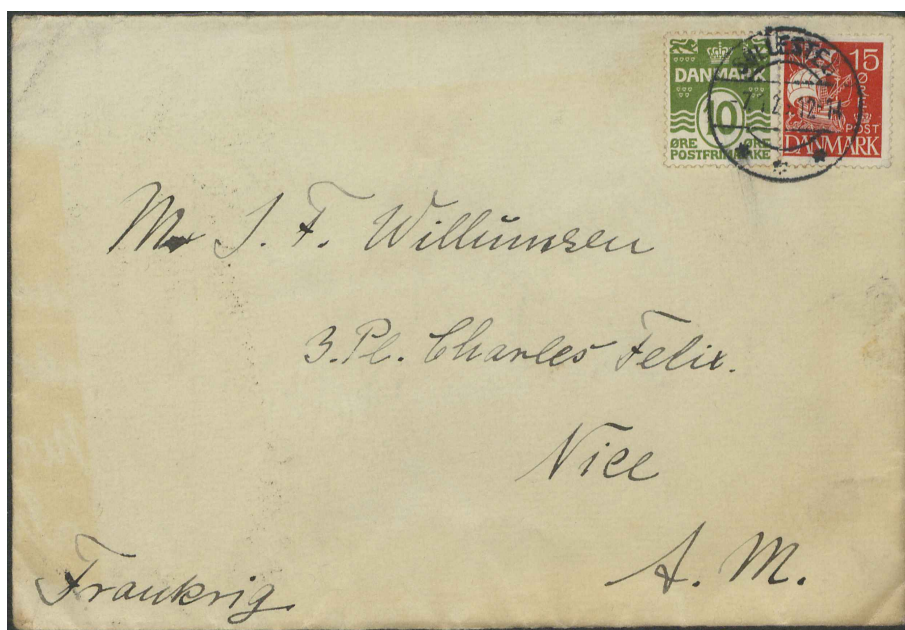 DANMARK
10
ØRE ØRE
POSTFRIMÆRKE
15
ØRE
POST
DANMARK
Mr J. F. Willumsen
3. Pl. Charles Felix.
Nice
A. M.
Frankrig